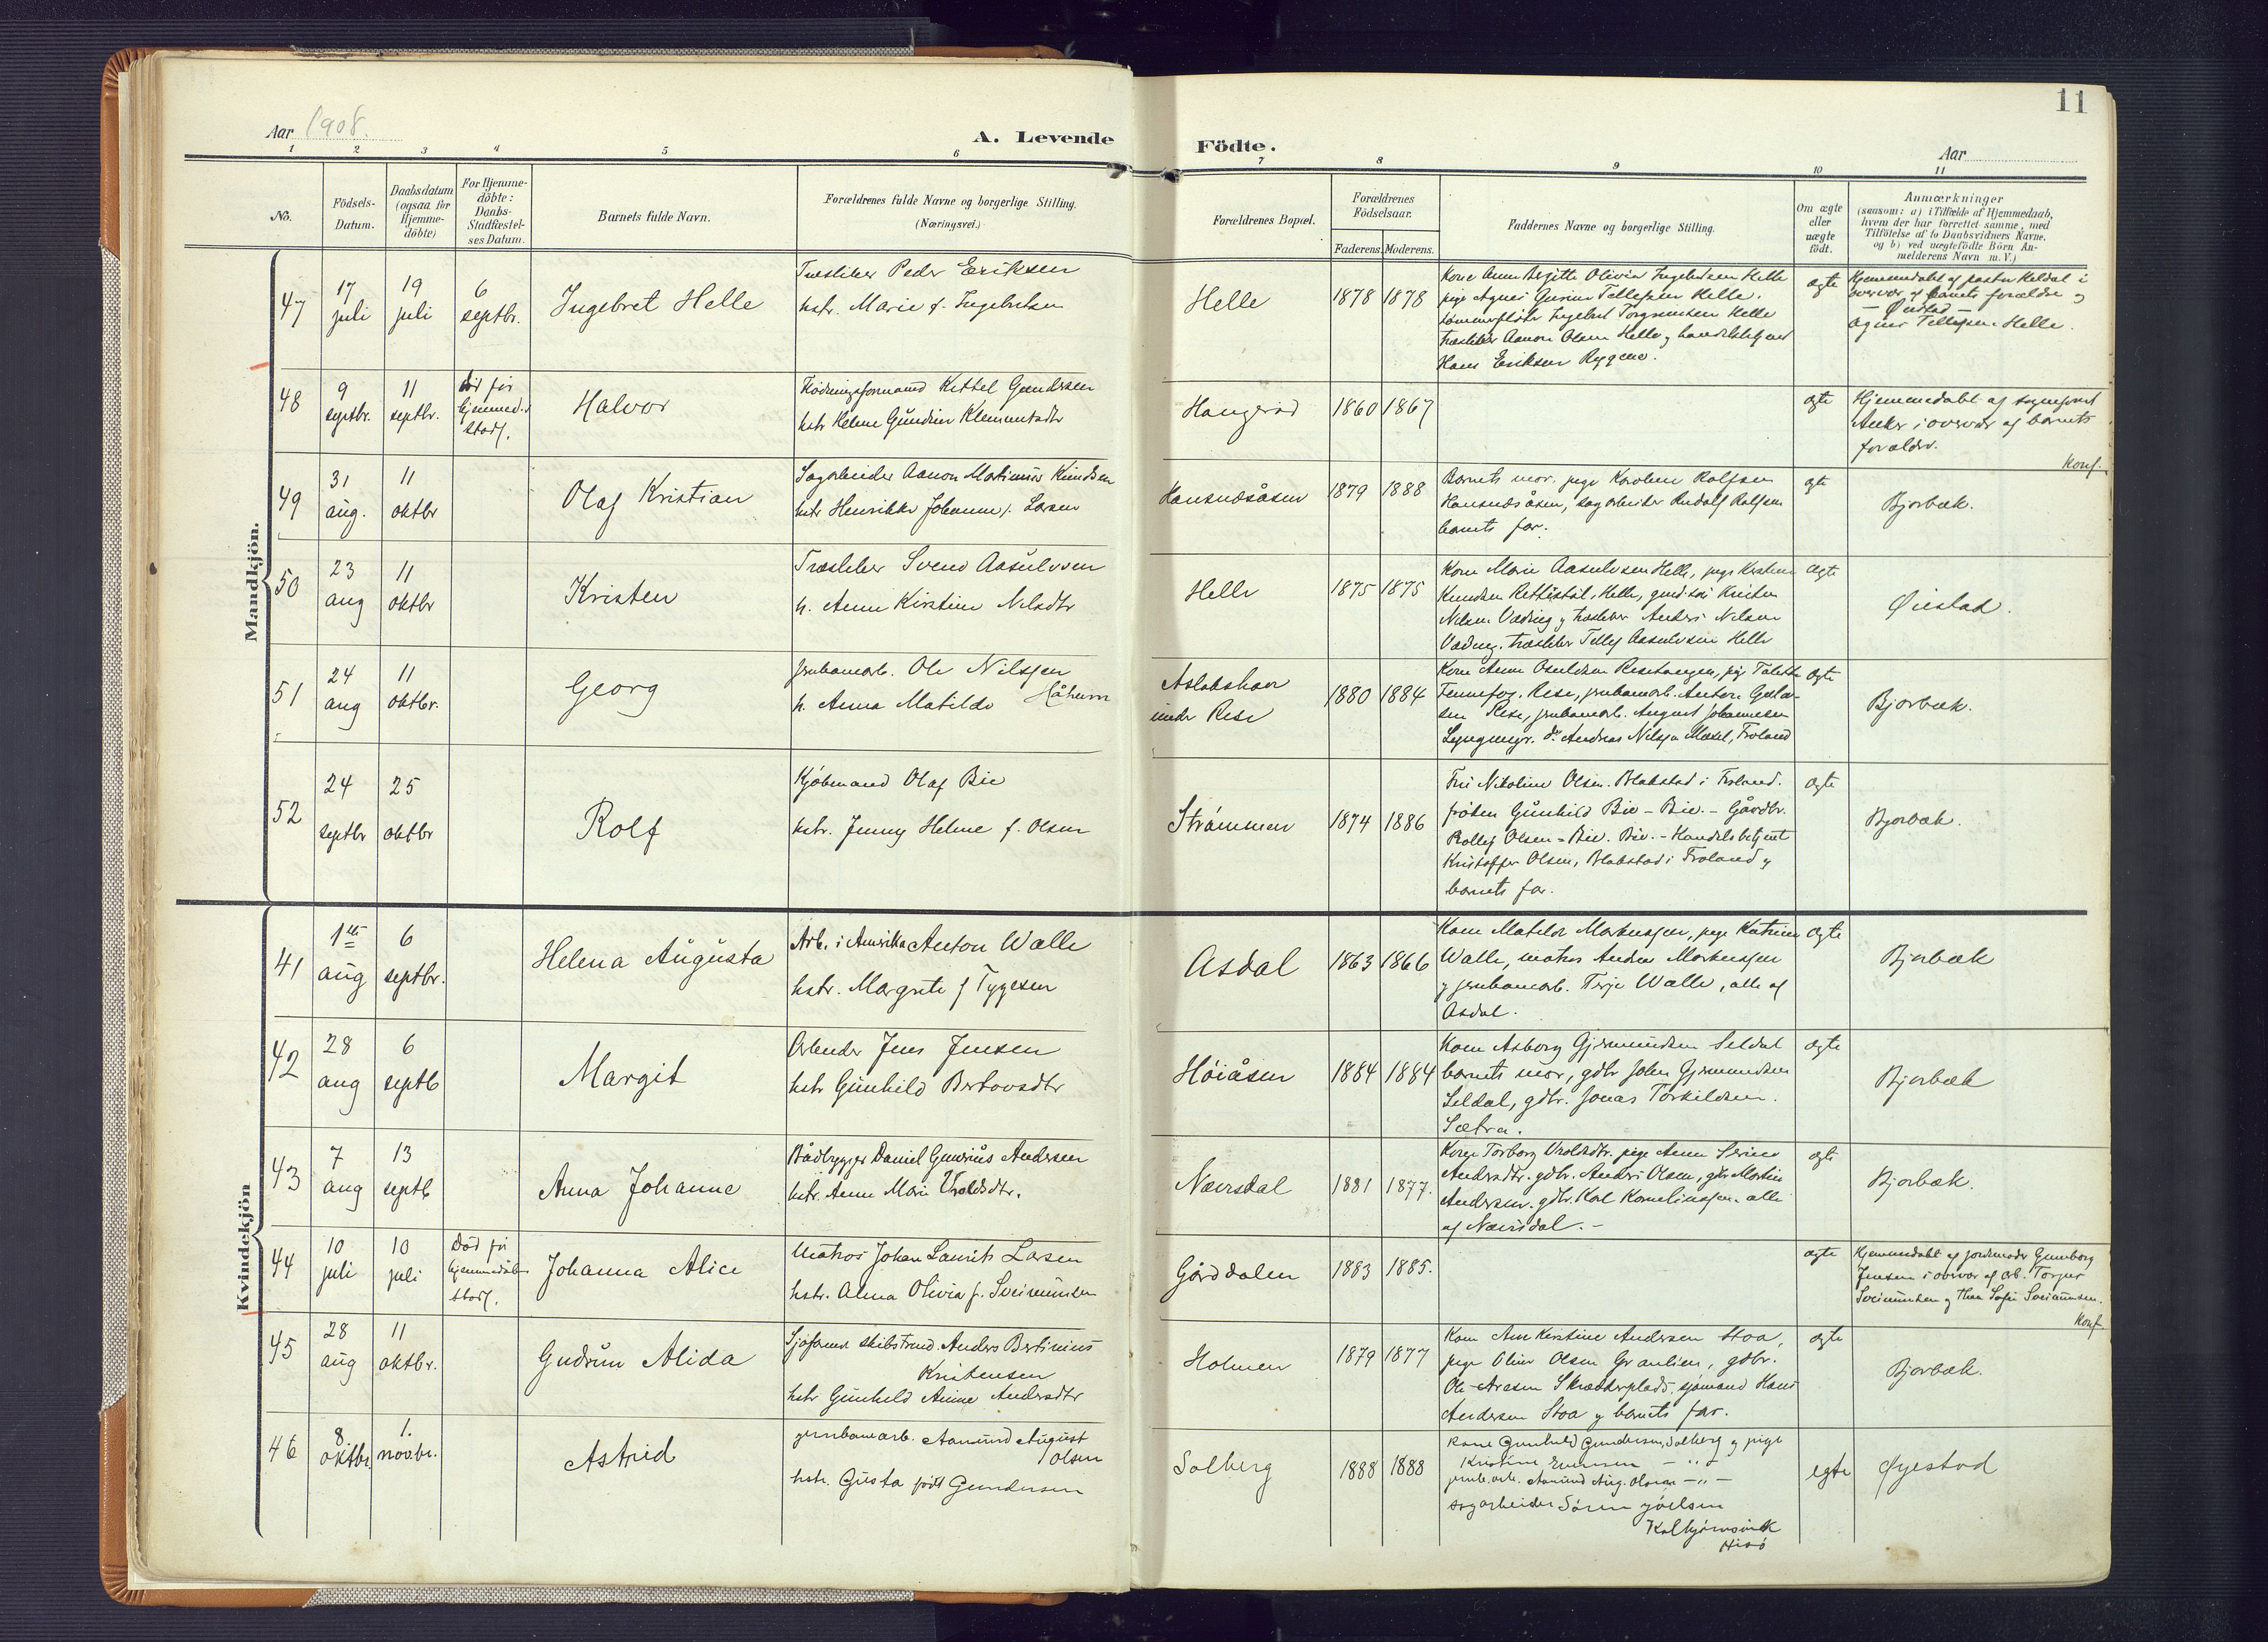 11
Aar 1908.
A. Levende
Födte.
Aar
1 2 3 4 5 6 7 8 9 10 11
No.
Födsels-
Datum.
Daabsdatum
(ogsaa for
Hjemme-
döbte)
For Hjemme-
döbte:
Daabs-
Stadfæstel-
ses Datum.
Barnets fulde Navn.
Forældrenes fulde Navne og borgerlige Stilling.
(Næringsvei.)
Forældrenes Bopæl.
Forældrenes
Födselsaar.
Faderens. Moderens.
Faddernes Navne og borgerlige Stilling.
Om ægte
eller
uægte
födt.
Anmærkninger
(saasom: a) i Tilfælde af Hjemmedaab,
hvem der har forrettet samme, med
Tilföielse af to Daabsvidners Navne,
og b) ved uægtefödte Börn An-
melderens Navn m.V.)
Mandkjön.
47
17
juli
19
juli
6
septbr.
Ingebret Helle
Træsliber Peder Eriksen
hstr. Marie f. Ingebretsen
Helle
1878 1878
Kone Anne Birgitte Olivia Ingebretsen Helle
pige Agnes Tellefsen Helle.
Ingebret Torgrimsen Helle
træsliber Aanon Olsen Helle, handelsbetjent
Hans Eriksen Rygene.
ægte
Hjemmedøbt af pastor i
overvær af barnets forældre og
Øiestad
Agnes Tellefsen Helle.
48
9
septbr.
11
septbr.
død før
hjemmed.s
stadf.
Halvor
Fløtningsformand Kittel Gundersen
hstr Helene Gundine Klemmetsdtr
Haugerød
1860 1867
ægte
Hjemmedøbt af sogneprest
Anker i overvær af barnets
forældre.
49
31
aug.
11
oktbr
Olaf Kristian
Sagarbeider Aanon Martinius Knudsen
hstr Henrikke Johanne f. Larsen
Hansnæsåsen
1879 1888
Barnets mor. pige Karoline Rolfsen
Hansnæsåsen, sagarbeider Rudolf Rolfsen
barnets far.
ægte
Konf.
Bjorbæk.
50
23
aug
11
oktbr
Kristen
Træsliber Svend Aasulvsen
h. Anne Kirstine Nilsdtr
Helle
1875 1875
Kone Marie Aasulvsen Helle, pige Kirstine
Knudsen Helle, Kristen
Nilsen Vædring, træsliber Anders Nilsen
Vædring. træsliber Tellef Aasulvsen Helle
ægte
Øiestad.
51
24
aug
11
oktbr.
Georg
jernbanearb. Ole Nilsen
Håhum
h. Anna Matilde
Aslakshavn
under Rise
1880 1884
Kone Anne Osuldsen Risetangen, pige
Rise, jernbanearb. Anton
Rise, jernbanearb. August Johannesen
Andreas Nilsen Froland
ægte
Bjorbæk.
52
24
septbr
25
oktbr
Rolf
Kjøbmand Olaf Bie
hstr. Jenny Helene f. Olsen
Strømmen
1874 1886
Fru Nikoline Olsen. Blakstad i Froland.
frøken Gunhild Bie – Bie. – Gårdbr.
Rollef Olsen – Bie. Bie. – Handelsbetjent
Kristoffer Olsen, Blakstad i Froland og
barnets far.
ægte
Bjorbæk.
Kvindekjön
41
1ste
aug
6
septbr.
Helena Augusta
Arb. i Amerika Anton Walle
hstr. Margrete f Tygesen
Asdal
1863 1866
Kone Matilde Markussen, pige Katrine
Walle, matros Anders Markussen
og jernbanearb. Terje Walle, alle af
Asdal.
ægte
Bjorbæk
42
28
aug
6
septb
Margit
Arbeider Jens Jensen
hstr Gunhild
Høiåsen
1884 1884
Kone Asborg Gjermundsen Seldal
barnets mor, gdbr John Gjermundsen
Seldal, gdbr. Jonas Torkildsen.
Sætra.
ægte
Bjorbæk
43
7
aug
13
septb
Anna Johanne
Båtbygger Daniel Andersen
hstr. Anne Marie Uroldsdtr.
Næversdal
1881 1877.
Kone Torborg Uroldsdtr. pige Anne Serine
Andersdtr. gdbr. Anders Olsen, gdbr Martin
Andersen. gdbr. Karl Korneliussen. alle
af Næversdal. –
ægte
Bjorbæk.
44
10
juli
10
juli
Død før
hjemmedåbs
stadf.
Johanna Alice
Matros Johan Laurits Larsen
hstr. Alma Olivia f. Sveinunsen
Gårddalen
1883 1885.
ægte
Hjemmedøbt af jordmoder Gunborg
Jensen i overvær af arb. Torjus
Sveinunsen og Thea Sofie Sveinunsen.
45
28
aug
11
oktbr.
Gudrun Alida
Sjøfarende skibstømd. Anders Bertinius
Kristensen
hstr Gunhild Amine Andersdtr
Holmen
1879 1877
Kone Ane Kirstine Andersen Stoa,
pige Oline Olsen Granlien, gdbr.
Ole Aresen Skrædderplads, sjømand Hans
Andersen Stoa og barnets far.
ægte
Konf.
Bjorbæk.
46
8.
oktbr.
1.
novbr.
Astrid
jernbanearb. Aanund August
Olsen
hstr. Gusta født Gundersen
Solberg
1888 1888
Kone Gunhild Gundersen, Solberg og pige
Kristine – " –
jernb.arb. Aanund Aug. Olsen – " –
sagarbeider Søren Joelsen
Kolbjørnsvik
Hisø
egte
Øyestad